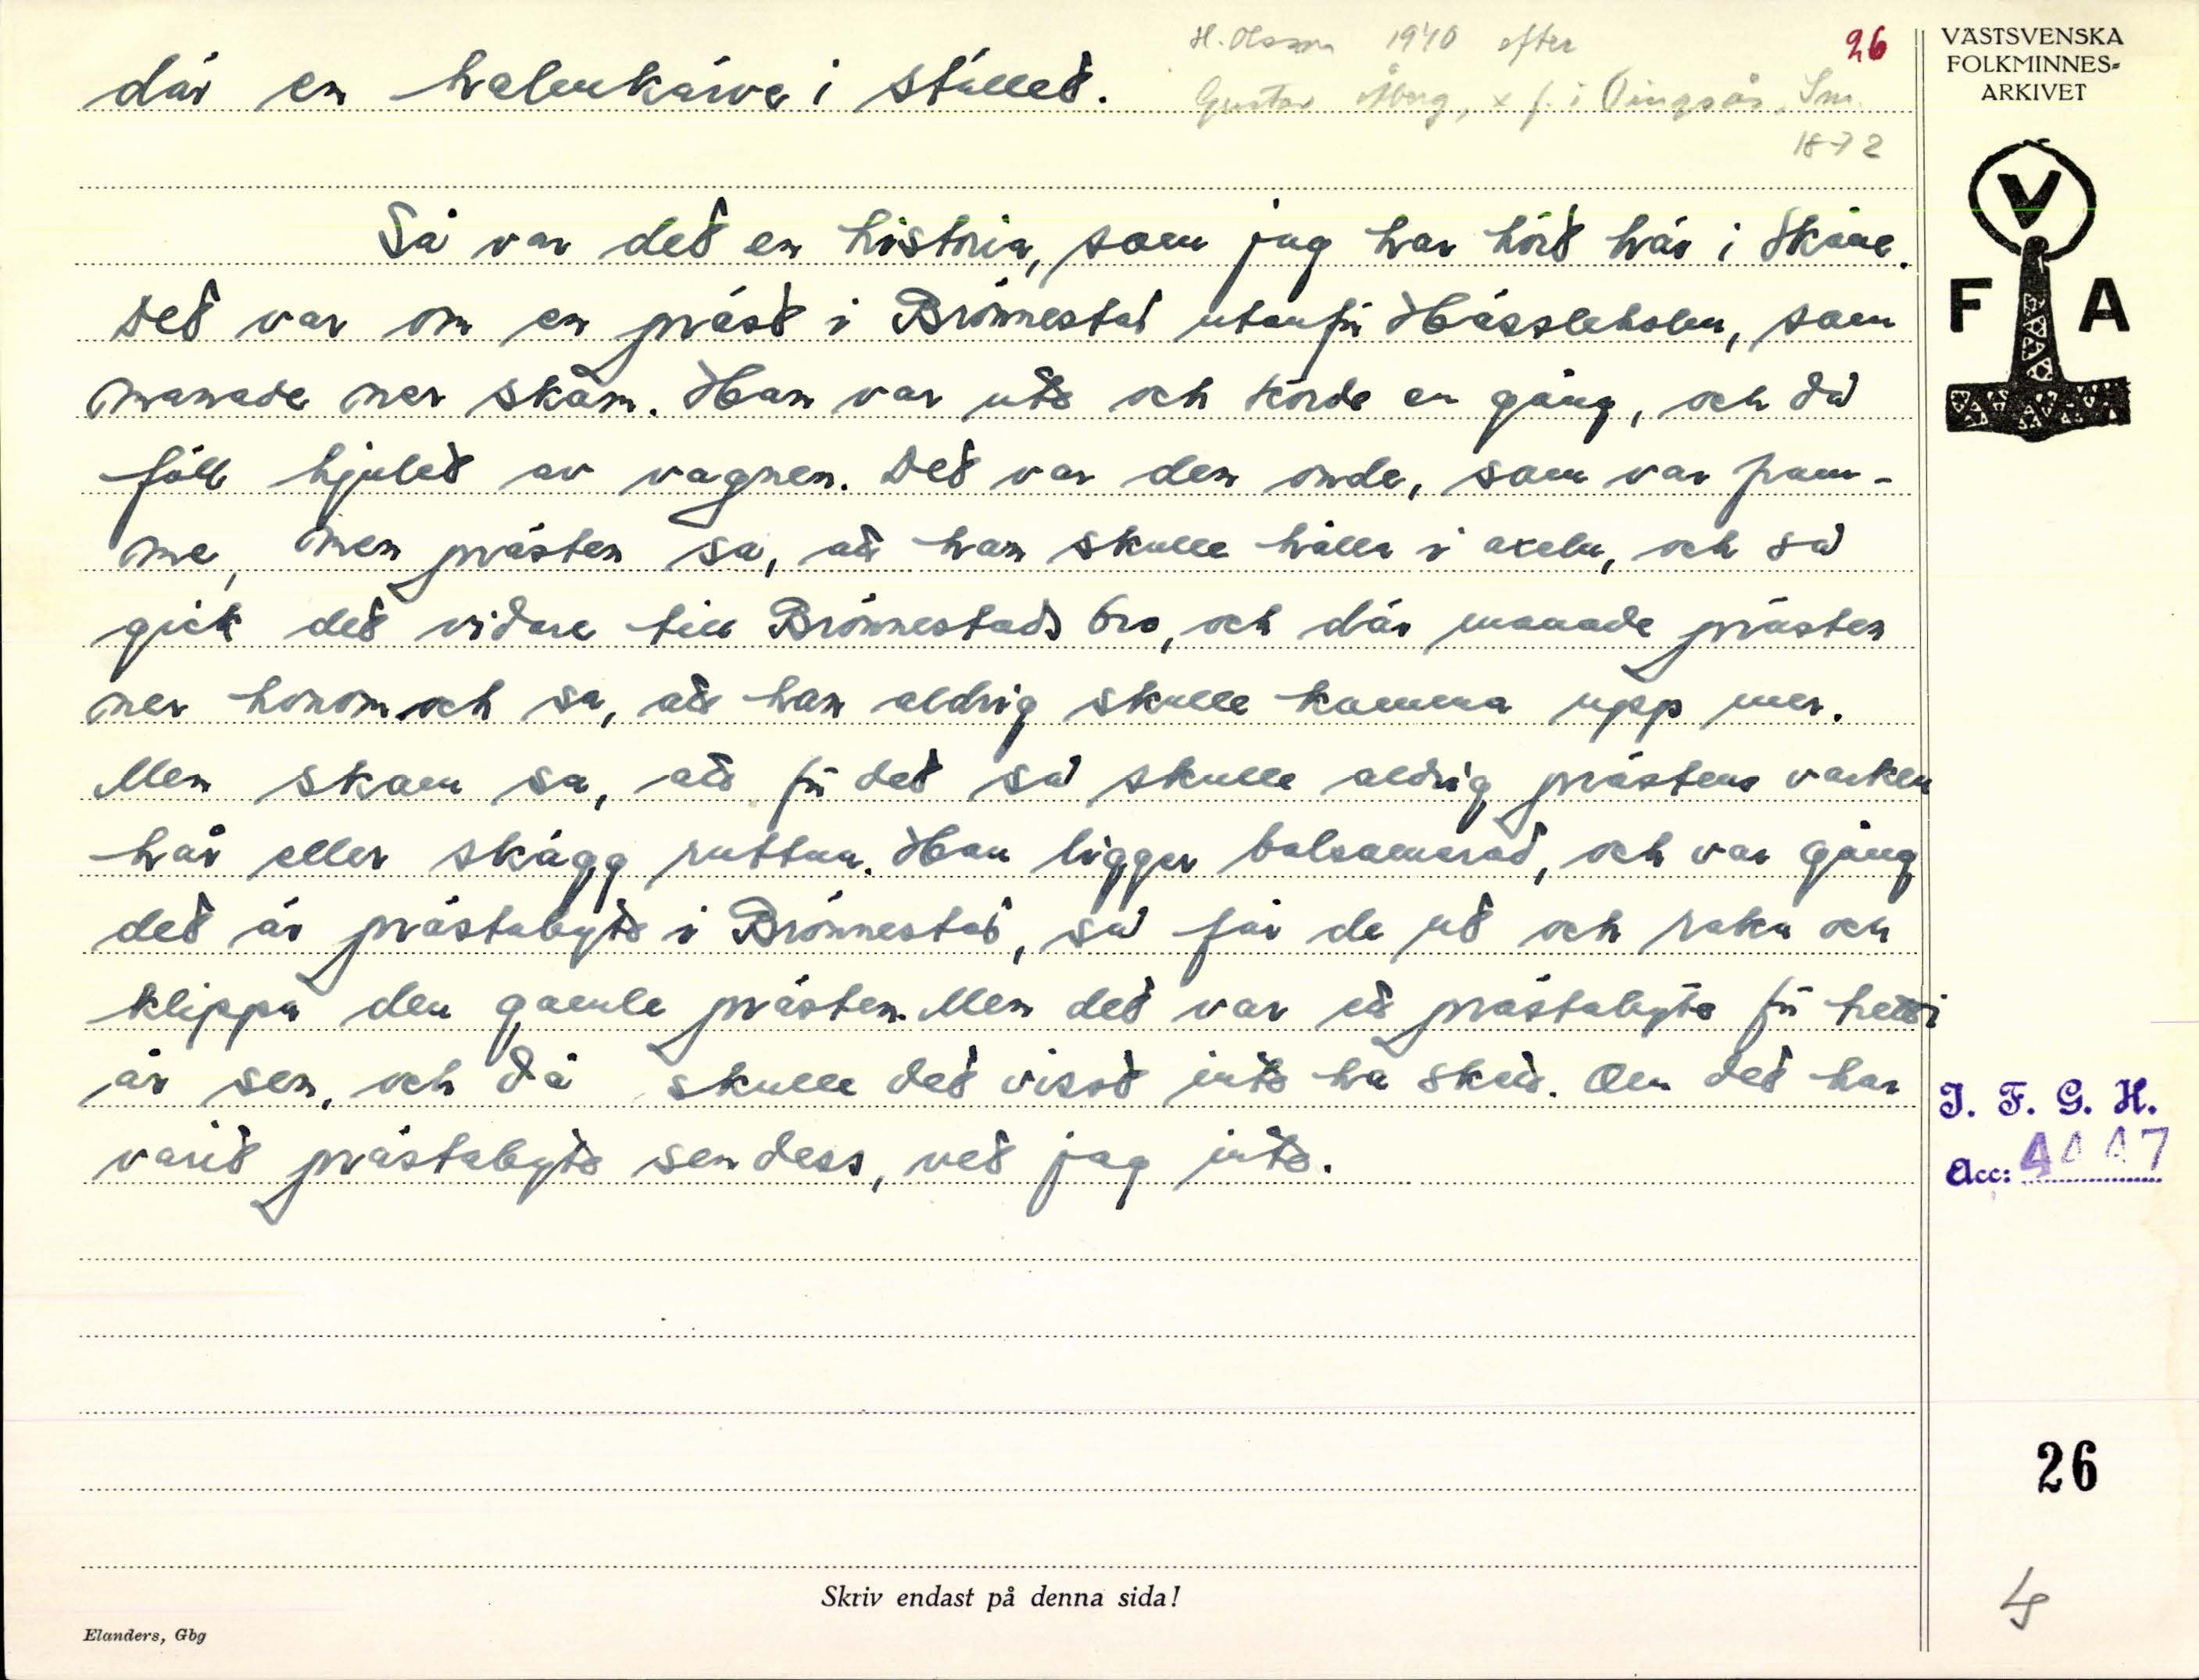 H. Olsson 1940 efter
26
där en halmkärve i stället.
Gustav Åberg, f. i Vingsås, Sm.
1872
VÄSTSVENSKA
FOLKMINNES-
ARKIVET
V
F A
Så var det en historia, som jag har hört här i Skåne.
Det var om en präst i Brönnestad utanför Hässleholm, som
manade ner skam. Han var ute och körde en gång, och då
föll hjulet av vagnen. Det var den onde, som var fram-
me, men prästen sa, att han skulle hålla i axeln, och så
gick det vidare till Brönnestads bro, och där manade prästen
ner honom och sa, att han aldrig skulle komma upp mer.
Men skam sa, att för det så skulle aldrig prästens varken
hår eller skägg ruttna. Han ligger balsamerad, och var gång
det är prästabyte i Brönnestad, så får de ut och raka och
klippa den gamle prästen. Men det var ett prästabyte för tretti
år sen, och då skulle det visst inte ha skett. Om det har
varit prästabyte sen dess, vet jag inte.
I. F. G. H.
Acc: 4447
26
Skriv endast på denna sida!
Elanders, Gbg